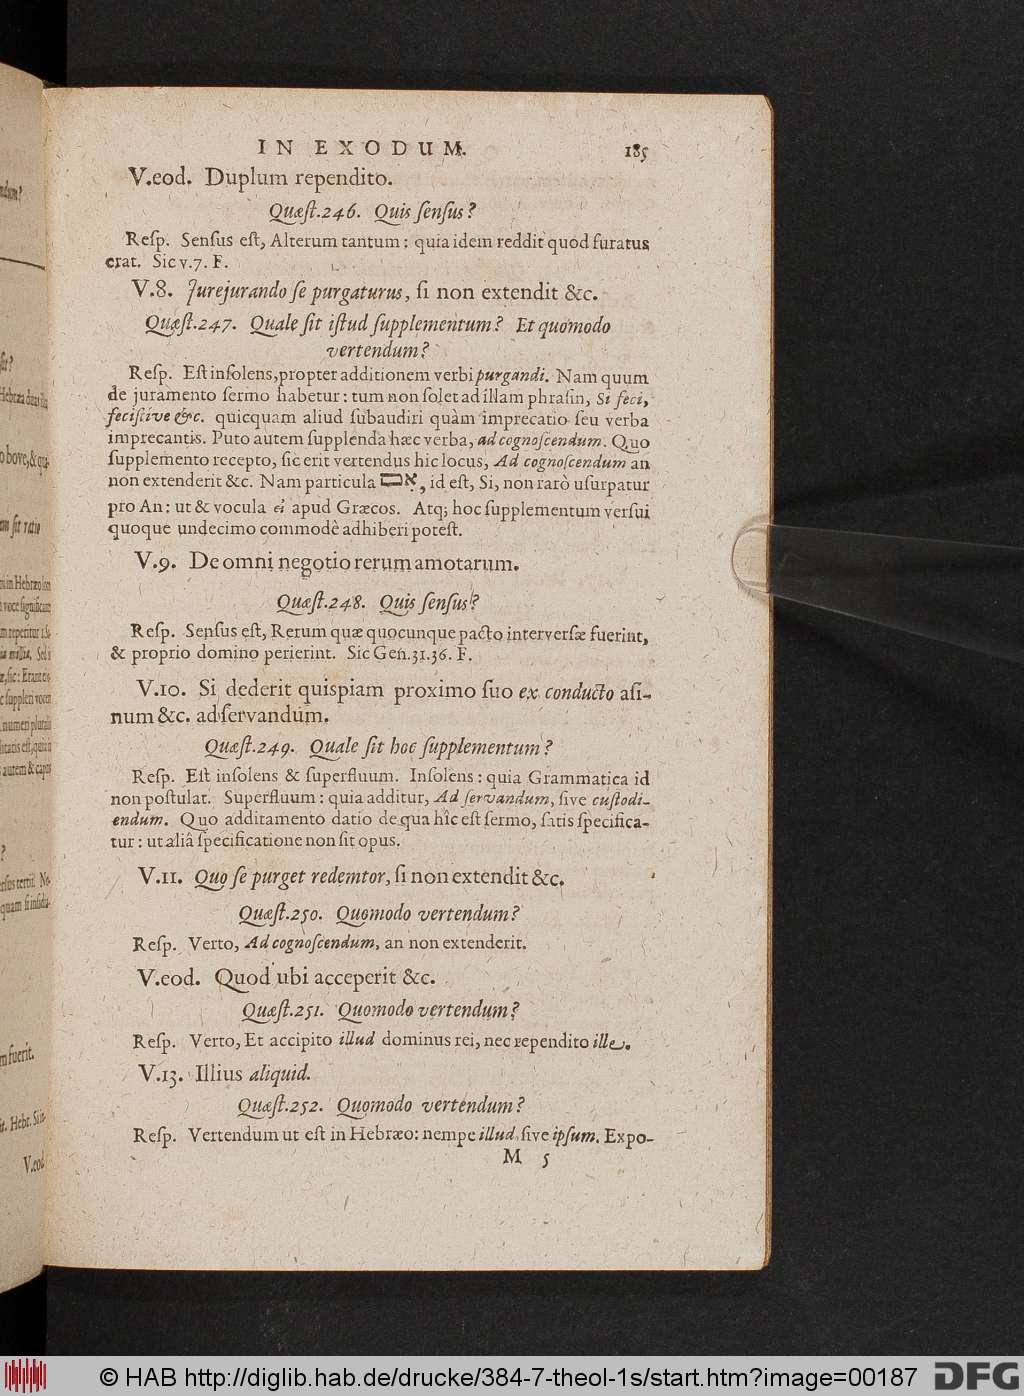 IN EXODUM. 185
V.eod. Duplum rependito.
Quæſt.246. Quis ſenſus?
Reſp. Senſus eſt, Alterum tantum: quia idem reddit quod furatus
erat. Sic v.7. F.
V.8. Jurejurando ſe purgaturus, ſi non extendit &c.
Quæſt.247. Quale ſit iſtud ſupplementum? Et quomodo
vertendum?
Reſp. Eſt inſolens, propter additionem verbi purgandi. Nam quum
de juramento ſermo habetur: tum non ſolet ad illam phraſin, Si feci,
feciſtive &c. quicquam aliud ſubaudiri quàm imprecatio ſeu verba
imprecantis. Puto autem ſupplenda hæc verba, ad cognoſcendum. Quo
ſupplemento recepto, ſic erit vertendus hic locus, Ad cognoſcendum an
non extenderit &c. Nam particula אִם, id eſt, Si, non rarò uſurpatur
pro An: ut & vocula εἰ apud Græcos. Atq; hoc ſupplementum verſui
quoque undecimo commodè adhiberi poteſt.
V.9. De omni negotio rerum amotarum.
Quæſt.248. Quis ſenſus?
Reſp. Senſus eſt, Rerum quæ quocunque pacto interverſæ fuerint,
& proprio domino perierint. Sic Gen.31.36. F.
V.10. Si dederit quispiam proximo ſuo ex conducto aſi-
num &c. adſervandum.
Quæſt.249. Quale ſit hoc ſupplementum?
Reſp. Eſt inſolens & ſuperfluum. Inſolens: quia Grammatica id
non poſtulat. Superfluum: quia additur, Ad ſervandum, ſive cuſtodi-
endum. Quo additamento datio de qua hîc eſt ſermo, ſatis ſpecifica-
tur: ut aliâ ſpecificatione non ſit opus.
V.11. Quo ſe purget redemtor, ſi non extendit &c.
Quæſt.250. Quomodo vertendum?
Reſp. Verto, Ad cognoſcendum, an non extenderit.
V.eod. Quod ubi acceperit &c.
Quæſt.251. Quomodo vertendum?
Reſp. Verto, Et accipito illud dominus rei, nec rependito ille.
V.13. Illius aliquid.
Quæſt.252. Quomodo vertendum?
Reſp. Vertendum ut eſt in Hebræo: nempe illud ſive ipſum. Expo-
M 5
© HAB http://diglib.hab.de/drucke/384-7-theol-1s/start.htm?image=00187
DFG